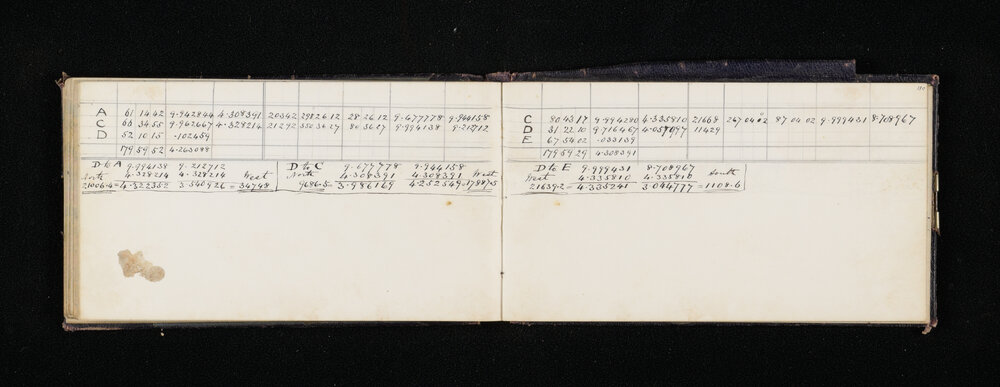 A 61 14 42 9.942844 4.308391 20342 298 26 12 28 26 12 9.677778 9.944158
C 66 34 55 9.962667 4.328214 21292 350 36 27 80 36 27 9.994138 9.212712
D 52 10 15 .102459
179 59 52 4.263088
D to A 9.994138 9.212712
North 4.328214 4.328214 West
21006.4 = 4.322352 3.540926 = 3474.8
D to C 9.677778 9.944158
North 4.308391 4.308391 West
9686.5 = 3.986169 4.252549 = 17887.5
110
C 80 43 17 9.994280 4.335810 21668 267 04 02 87 04 02 9.999431 8.708967
D 31 22 10 9.716467 4.057997 11429
E 67 54 02 .033139
179 59 29 4.308391
D to E 9.999431 8.708967
West 4.335810 4.335810 South
21639.2 = 4.335241 3.044777 = 1108.6